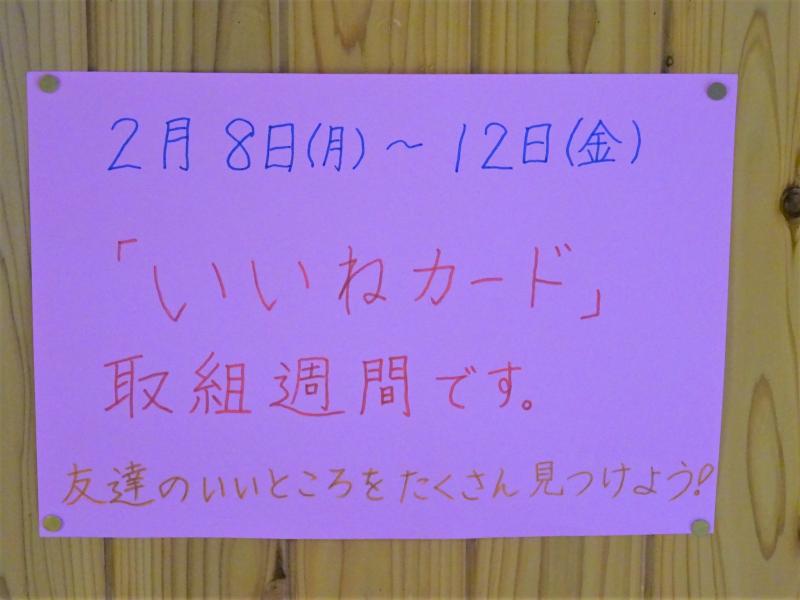 2月 8日(月)～12日(金)
「いいねカード」
取組週間です。
友達のいいところをたくさん見つけよう!